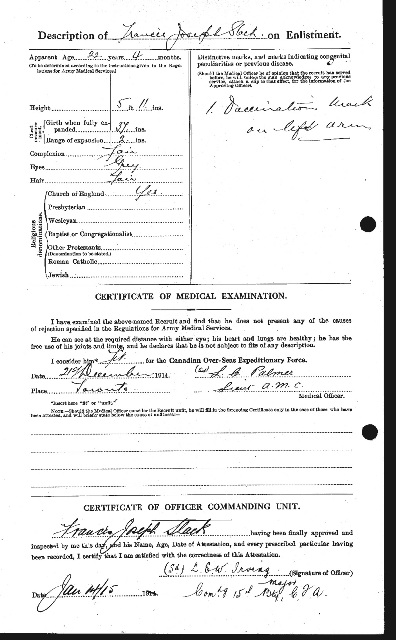 Description of Francis Joseph Slack on Enlistment.
Apparent Age 22 years 4 months.
(To be determined according to the instructions given in the Regulations for Army Medical Services)
Distinctive marks, and marks indicating congenital peculiarities or previous disease.
(Should the Medical Officer be of opinion that the recruit has served before, he will, unless the man acknowledges to any previous service, attach a slip to that effect, for the information of the Approving Officer).
Height 5 ft 11 ins.
1. Vaccination mark
on left arm
Chest measurement
Girth when fully expanded 39 ins.
Range of expansion 2 ins.
Complexion Fair
Eyes Grey
Hair Fair
Religious denominations.
Church of England Yes
Presbyterian
Wesleyan
Baptist or Congregationalist
Other Protestants
(Denomination to be stated.)
Roman Catholic
Jewish
CERTIFICATE OF MEDICAL EXAMINATION.
I have examined the above-named Recruit and find that he does not present any of the causes
of rejection specified in the Regulations for Army Medical Services.
He can see at the required distance with either eye; his heart and lungs are healthy; he has the
free use of his joints and limbs, and he declares that he is not subject to fits of any description.
I consider him* Fit for the Canadian Over-Seas Expeditionary Force.
Date 21st December 1914.
(Sd) L. C. Palmer
Place Toronto
Lieut A.M.C.
Medical Officer.
*Insert here "fit" or "unfit."
NOTE.—Should the Medical Officer consider the Recruit unfit, he will fill in the foregoing Certificate only in the case of those who have been attested, and will briefly state below the cause of unfitness:—
CERTIFICATE OF OFFICER COMMANDING UNIT.
Francis Joseph Slack having been finally approved and
inspected by me this day, and his Name, Age, Date of Attestation, and every prescribed particular having
been recorded, I certify that I am satisfied with the correctness of this Attestation.
(Sd) L E W Irving (Signature of Officer)
major
Date Jan 14/15 1914.
Com'g 15th Btty, C F A.